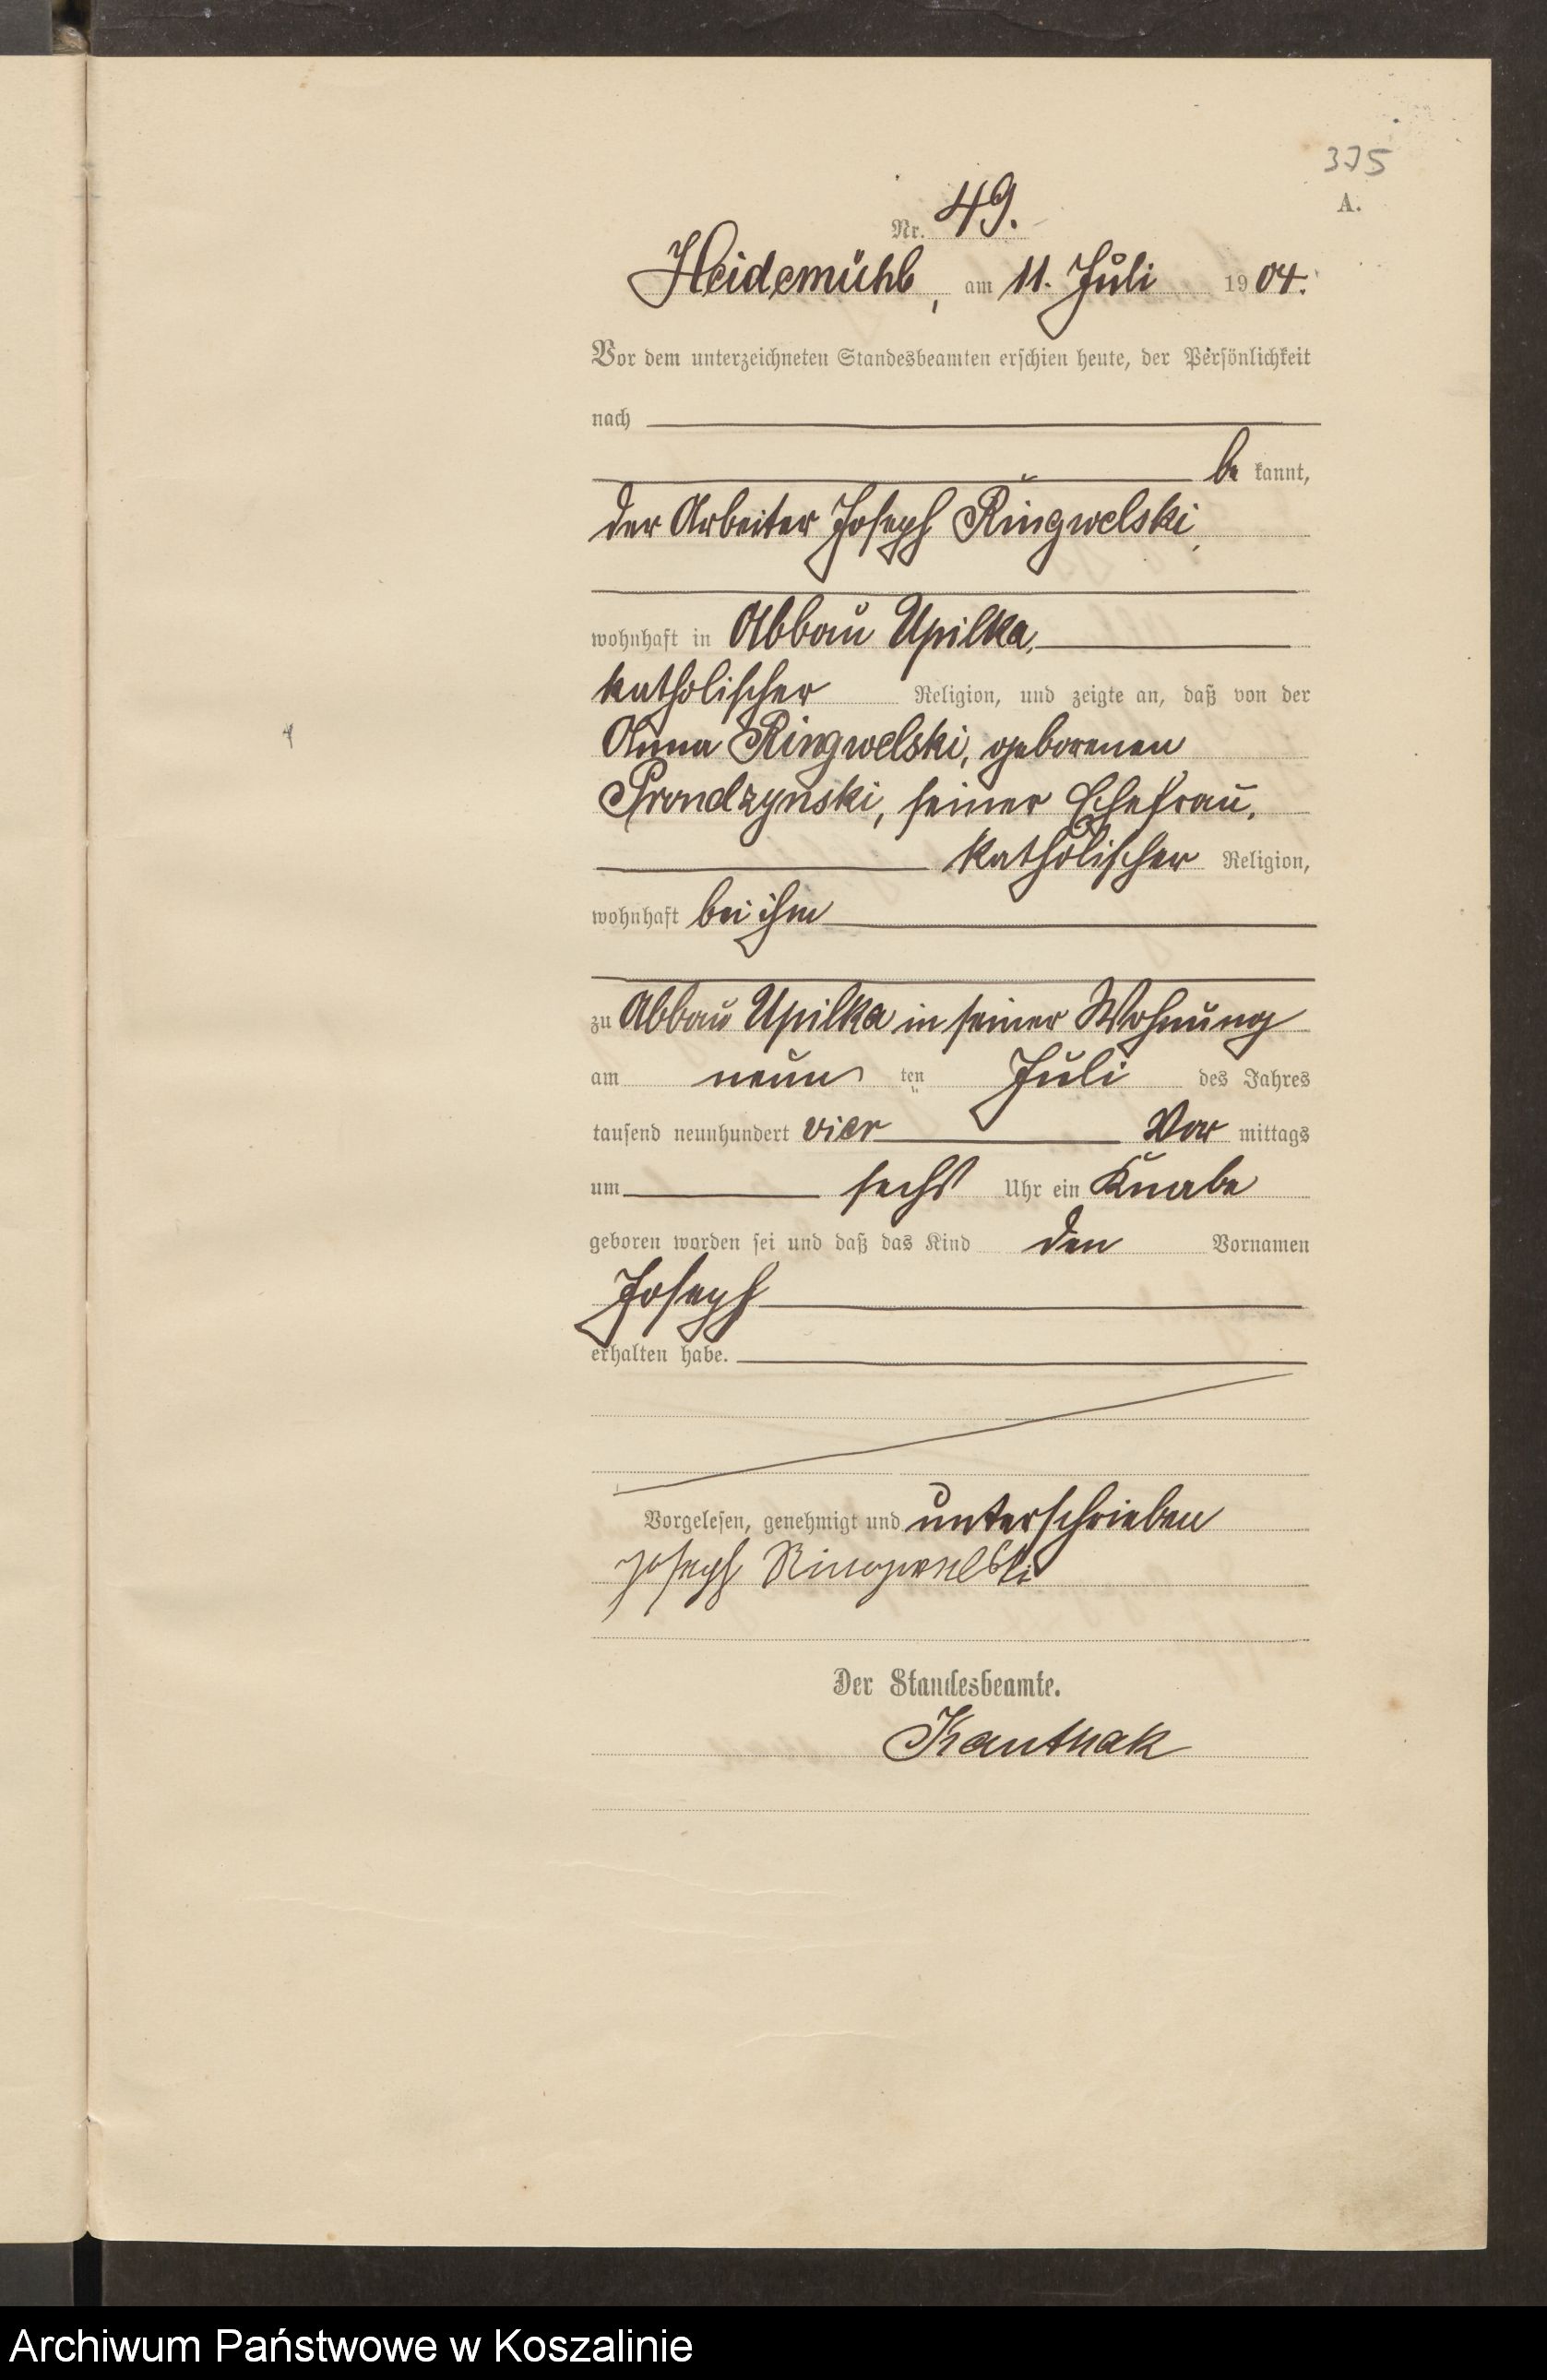 375
A.
Nr. 49.
Heidemühl, am 11. Juli 1904.
Vor dem unterzeichneten Standesbeamten erschien heute, der Persönlichkeit
nach
be kannt,
der Arbeiter Joseph Ringwelski,
wohnhaft in Abbau Upilka,
katholischer Religion, und zeigte an, daß von der
Anna Ringwelski, geborenen
Prondzynski, seiner Ehefrau,
katholischer Religion,
wohnhaft bei ihm
zu Abbau Upilka in seiner Wohnung
am neun ten Juli des Jahres
tausend neunhundert vier Vor mittags
um sechs Uhr ein Knabe
geboren worden sei und daß das Kind den Vornamen
Joseph
erhalten habe.
Vorgelesen, genehmigt und unterschrieben
Joseph Ringwelski
Der Standesbeamte.
Kanthak
Archiwum Państwowe w Koszalinie